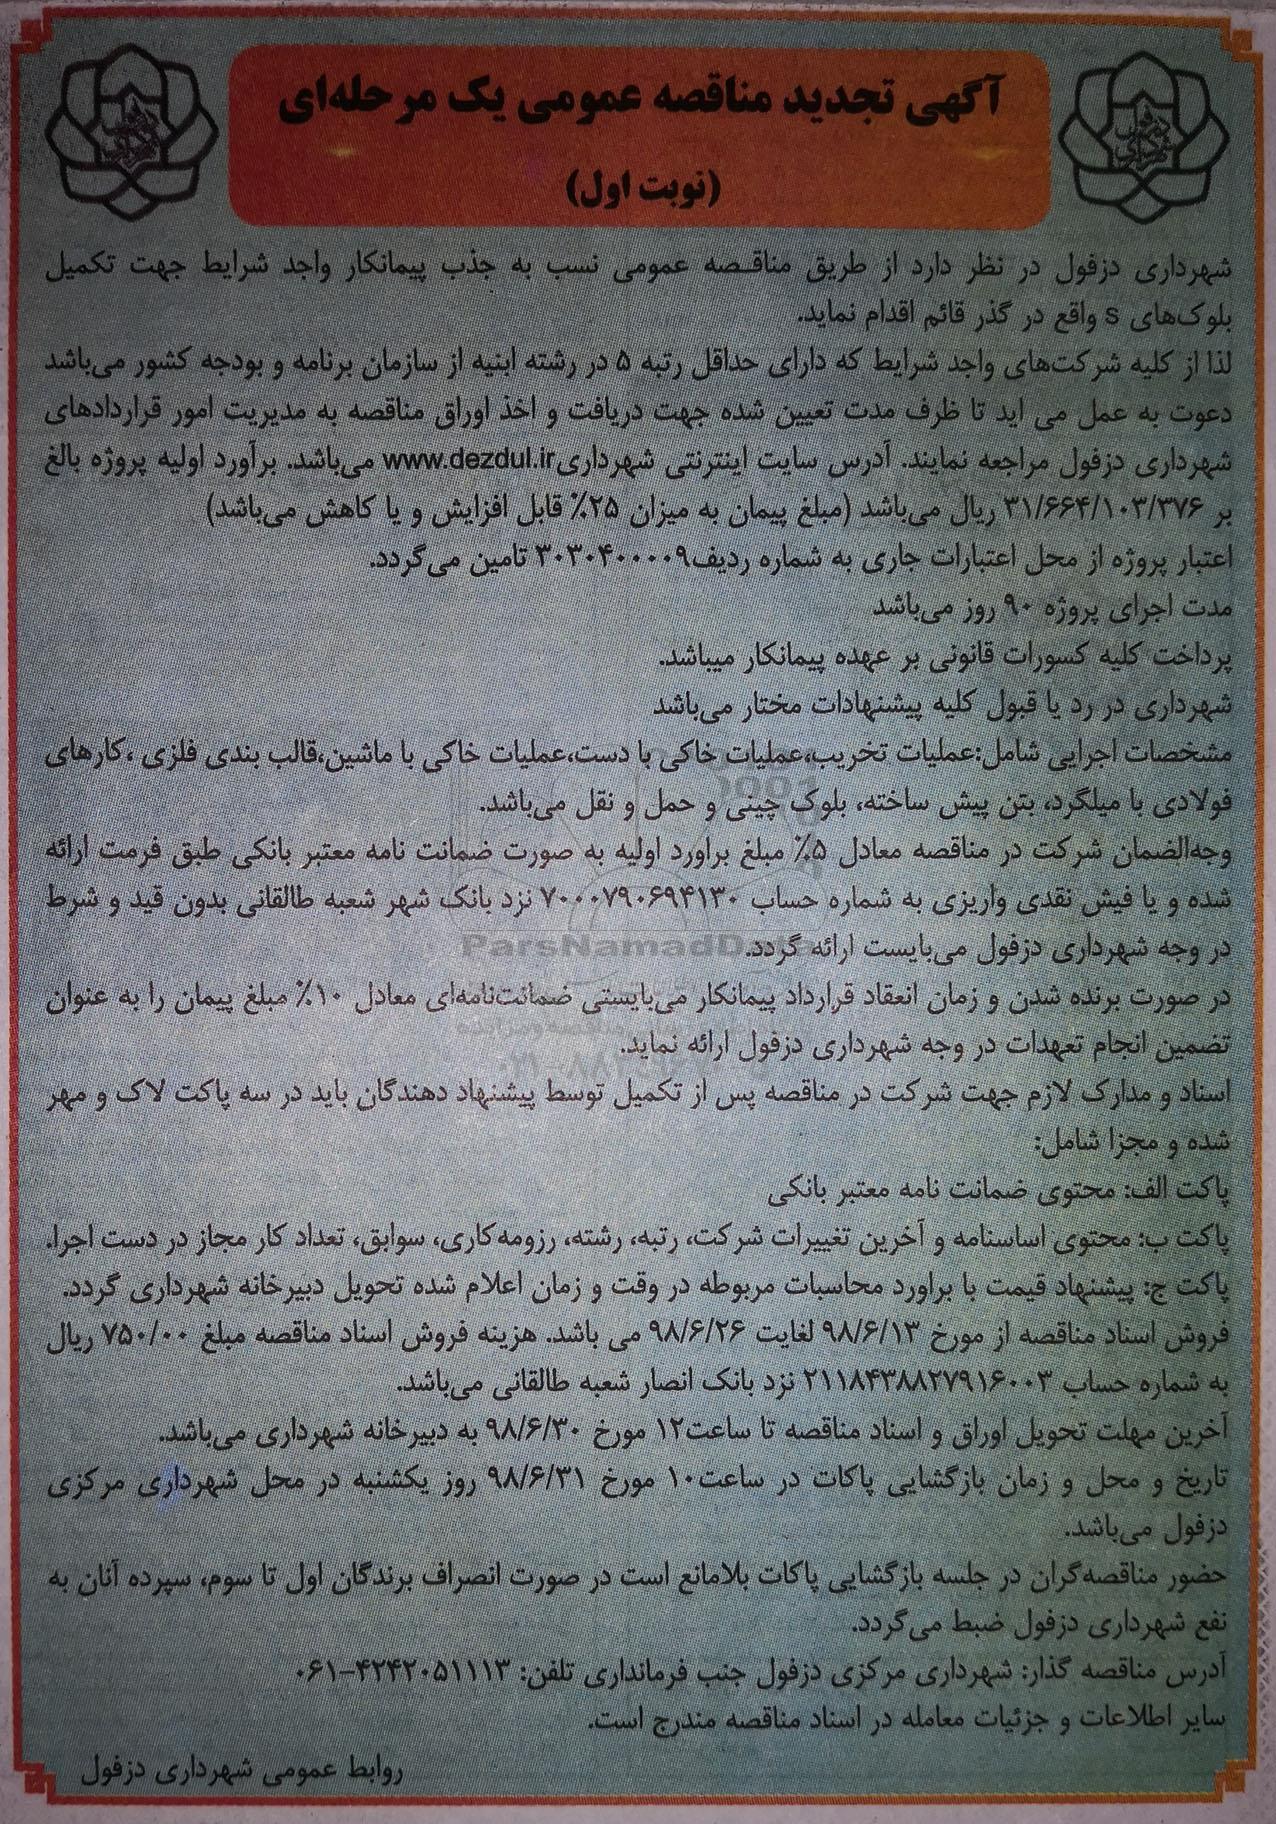 آگهی تجدید مناقصه عمومی یک مرحله‌ای
(نوبت اول)
شهرداری دزفول در نظر دارد از طریق مناقصه عمومی نسب به جذب پیمانکار واجد شرایط جهت تکمیل
بلوک‌های s واقع در گذر قائم اقدام نماید.
لذا از کلیه شرکت‌های واجد شرایط که دارای حداقل رتبه ۵ در رشته ابنیه از سازمان برنامه و بودجه کشور می‌باشد
دعوت به عمل می اید تا ظرف مدت تعیین شده جهت دریافت و اخذ اوراق مناقصه به مدیریت امور قراردادهای
شهرداری دزفول مراجعه نمایند. آدرس سایت اینترنتی شهرداری www.dezdul.ir می‌باشد. برآورد اولیه پروژه بالغ
بر ۳۱/۶۶۴/۱۰۳/۳۷۶ ریال می‌باشد (مبلغ پیمان به میزان ۲۵٪ قابل افزایش و یا کاهش می‌باشد)
اعتبار پروژه از محل اعتبارات جاری به شماره ردیف۳۰۳۰۴۰۰۰۰۹ تامین می‌گردد.
مدت اجرای پروژه ۹۰ روز می‌باشد
پرداخت کلیه کسورات قانونی بر عهده پیمانکار میباشد.
شهرداری در رد یا قبول کلیه پیشنهادات مختار می‌باشد
مشخصات اجرایی شامل:عملیات تخریب،عملیات خاکی با دست،عملیات خاکی با ماشین،قالب بندی فلزی ،کارهای
فولادی با میلگرد، بتن پیش ساخته، بلوک چینی و حمل و نقل می‌باشد.
وجه‌الضمان شرکت در مناقصه معادل ۵٪ مبلغ براورد اولیه به صورت ضمانت نامه معتبر بانکی طبق فرمت ارائه
شده و یا فیش نقدی واریزی به شماره حساب ۷۰۰۰۷۹۰۶۹۴۱۳۰ نزد بانک شهر شعبه طالقانی بدون قید و شرط
در وجه شهرداری دزفول می‌بایست ارائه گردد.
ParsNamadData
در صورت برنده شدن و زمان انعقاد قرارداد پیمانکار می‌بایستی ضمانت‌نامه‌ای معادل ۱۰٪ مبلغ پیمان را به عنوان
تضمین انجام تعهدات در وجه شهرداری دزفول ارائه نماید.
اسناد و مدارک لازم جهت شرکت در مناقصه پس از تکمیل توسط پیشنهاد دهندگان باید در سه پاکت لاک و مهر
شده و مجزا شامل:
پاکت الف: محتوی ضمانت نامه معتبر بانکی
پاکت ب: محتوی اساسنامه و آخرین تغییرات شرکت، رتبه، رشته، رزومه‌کاری، سوابق، تعداد کار مجاز در دست اجرا.
پاکت ج: پیشنهاد قیمت با براورد محاسبات مربوطه در وقت و زمان اعلام شده تحویل دبیرخانه شهرداری گردد.
فروش اسناد مناقصه از مورخ ۹۸/۶/۱۳ لغایت ۹۸/۶/۲۶ می باشد. هزینه فروش اسناد مناقصه مبلغ ۷۵۰/۰۰ ریال
به شماره حساب ۲۱۱۸۴۳۸۸۲۷۹۱۶۰۰۳ نزد بانک انصار شعبه طالقانی می‌باشد.
آخرین مهلت تحویل اوراق و اسناد مناقصه تا ساعت۱۲ مورخ ۹۸/۶/۳۰ به دبیرخانه شهرداری می‌باشد.
تاریخ و محل و زمان بازگشایی پاکات در ساعت۱۰ مورخ ۹۸/۶/۳۱ روز یکشنبه در محل شهرداری مرکزی
دزفول می‌باشد.
حضور مناقصه‌گران در جلسه بازگشایی پاکات بلامانع است در صورت انصراف برندگان اول تا سوم، سپرده آنان به
نفع شهرداری دزفول ضبط می‌گردد.
آدرس مناقصه گذار: شهرداری مرکزی دزفول جنب فرمانداری تلفن: ۴۲۴۲۰۵۱۱۱۳-۰۶۱
سایر اطلاعات و جزئیات معامله در اسناد مناقصه مندرج است.
روابط عمومی شهرداری دزفول